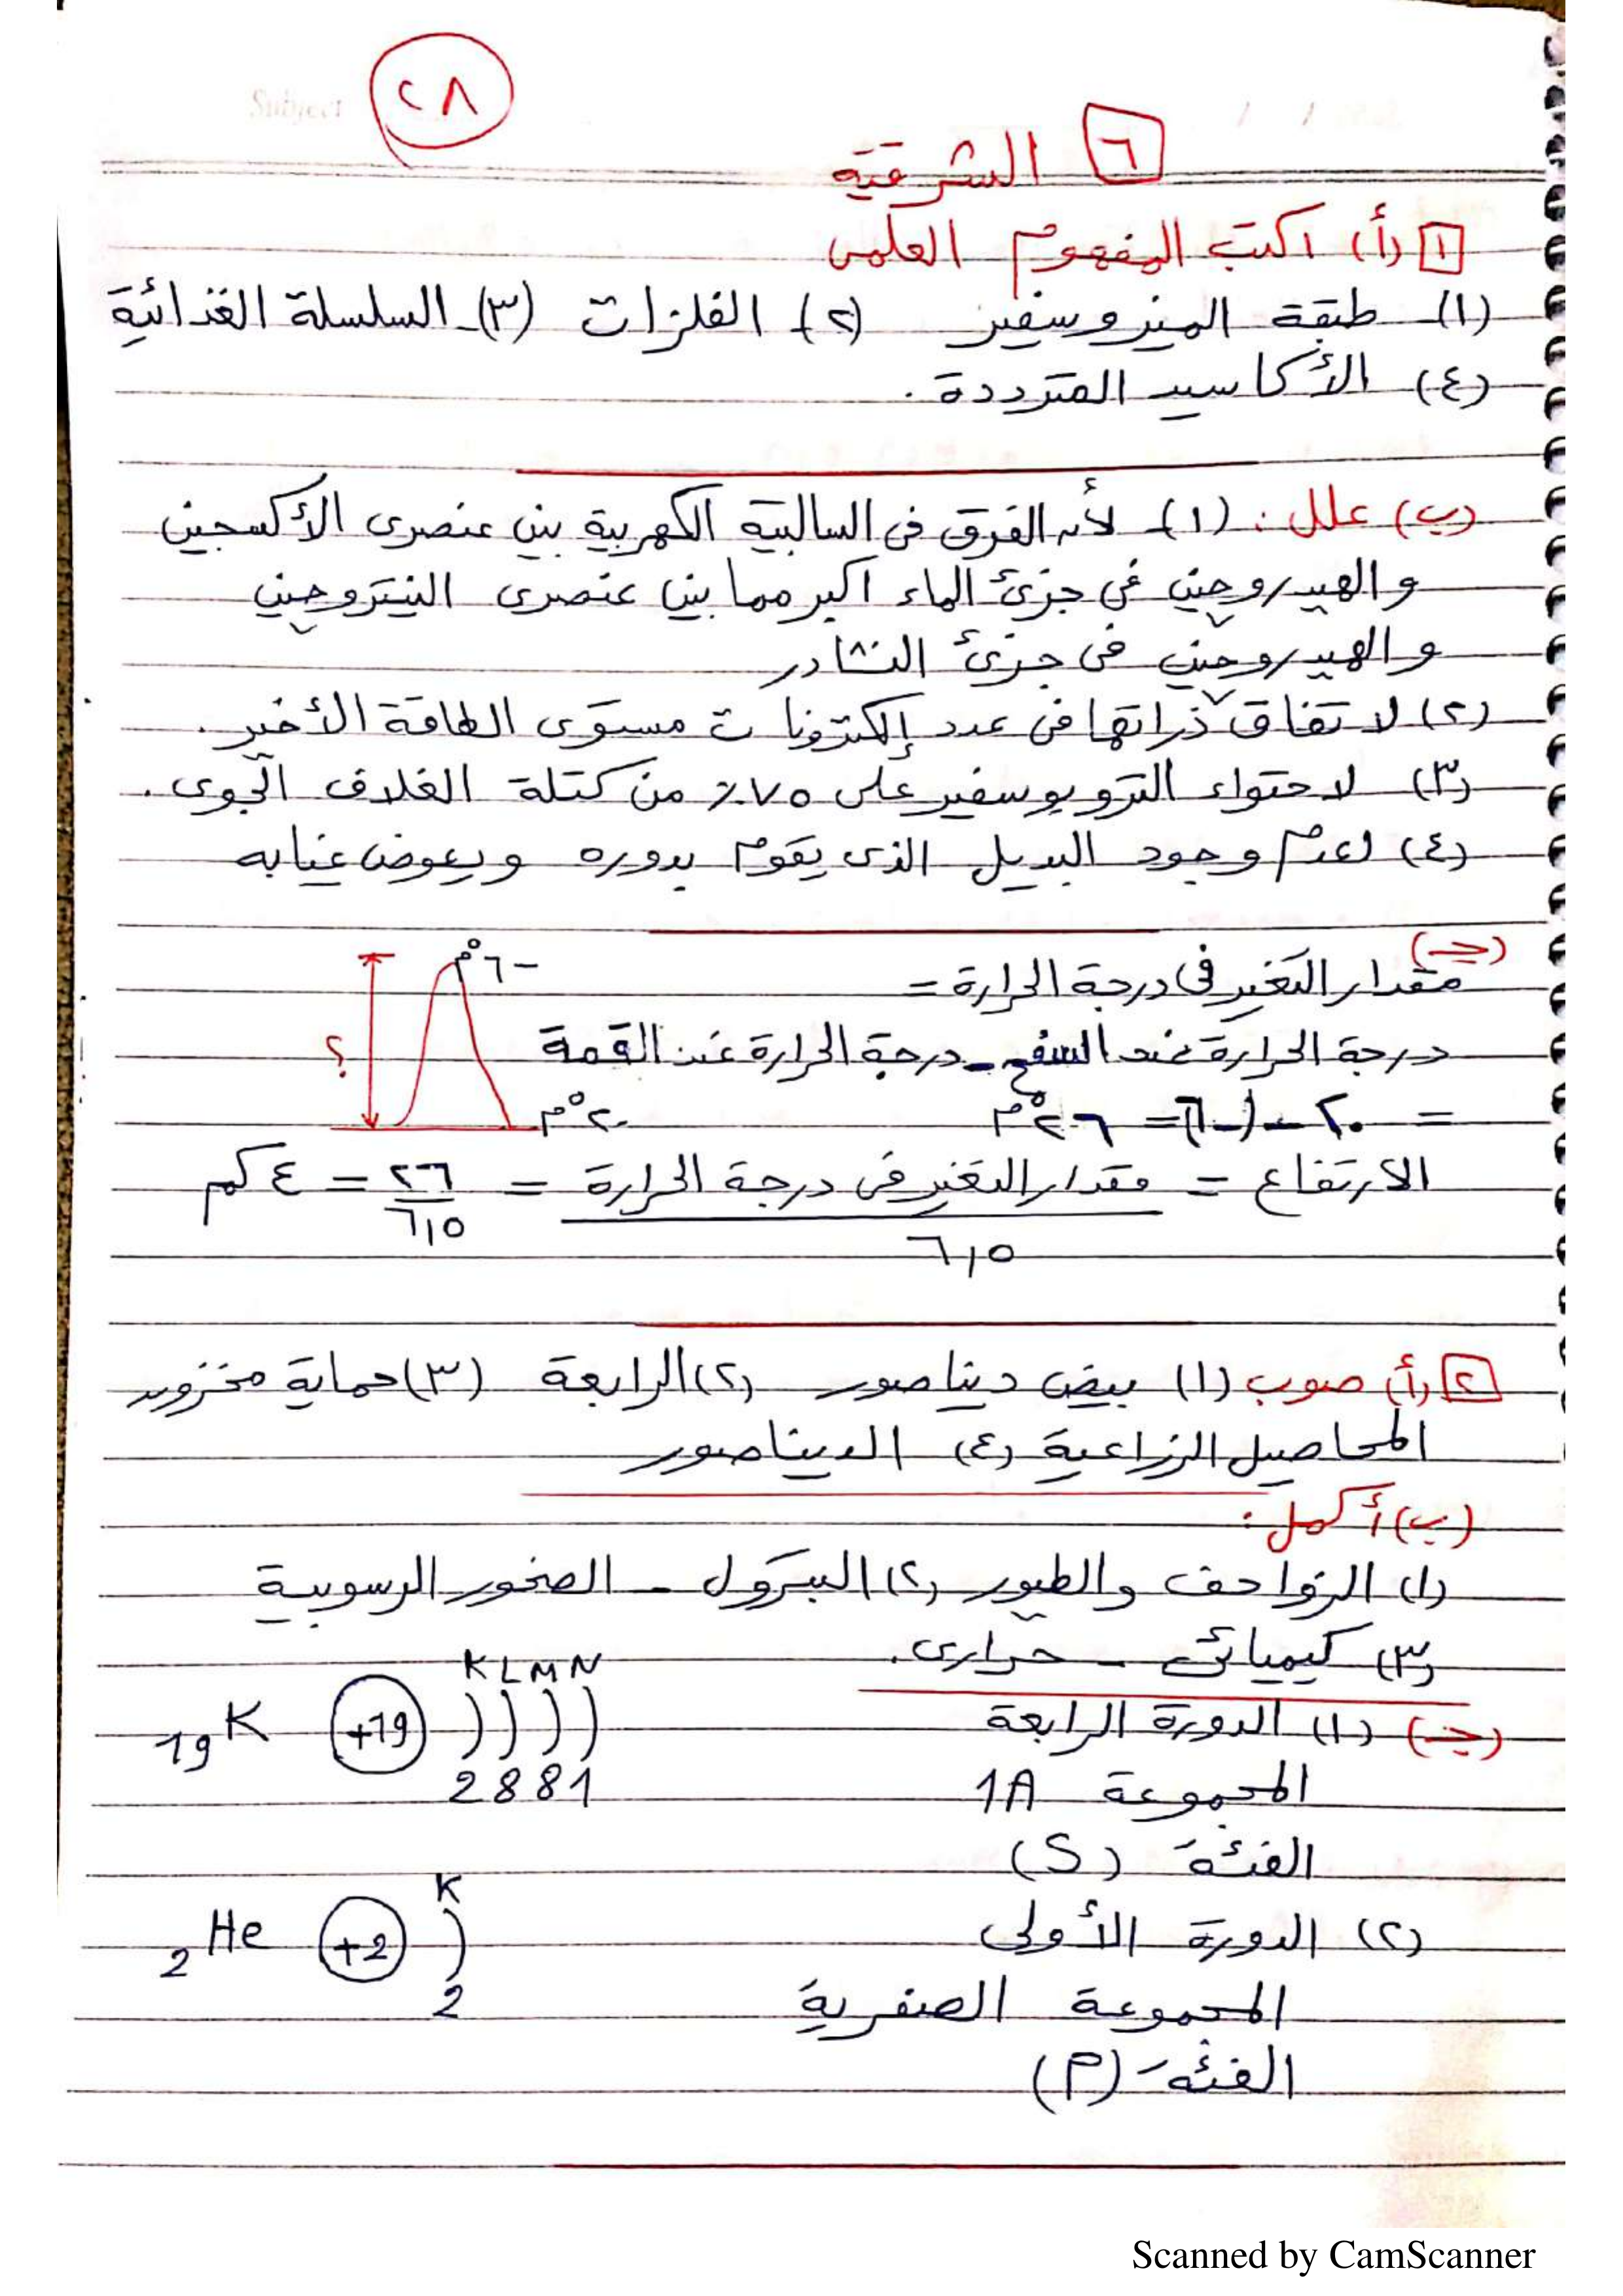 Subject
٢٨
٦ الشرقية
١ (أ) اكتب المفهوم العلمى
(١) طبقة الميزوسفير (٢) الفلزات (٣) السلسلة الغذائية
(٤) الأكاسيد المترددة .
(ب) علل : (١) لأن الفرق فى السالبية الكهربية بين عنصرى الأكسجين
والهيدروجين فى جزئ الماء اكبر مما بين عنصرى النيتروجين
والهيدروجين فى جزئ النشادر
(٢) لاتفاق ذراتها فى عدد إلكترونات مستوى الطاقة الأخير .
(٣) لاحتواء التروبوسفير على ٧٥٪ من كتلة الغلاف الجوى .
(٤) لعدم وجود البديل الذى يقوم بدوره ويعوض غيابه
(جـ)
مقدار التغير فى درجة الحرارة =
-٦°م
درجة الحرارة عند السفح - درجة الحرارة عند القمة
؟
= ٢٠ - (-٦) = ٢٦°م
٢٠°م
الارتفاع = مقدار التغير فى درجة الحرارة / ٦,٥ = ٢٦ / ٦,٥ = ٤ كم
٢ (أ) صوب (١) بيض ديناصور (٢) الرابعة (٣) حماية مخزون
المحاصيل الزراعية (٤) الديناصور
(ب) أكمل :
(١) الزواحف والطيور (٢) البترول - الصخور الرسوبية
(٣) كيميائى - حرارى .
K L M N
(جـ) (١) الدورة الرابعة
19K +19
2 8 8 1
المجموعة 1A
الفئة (S)
K
(٢) الدورة الأولى
2He +2
2
المجموعة الصفرية
الفئة (P)
Scanned by CamScanner